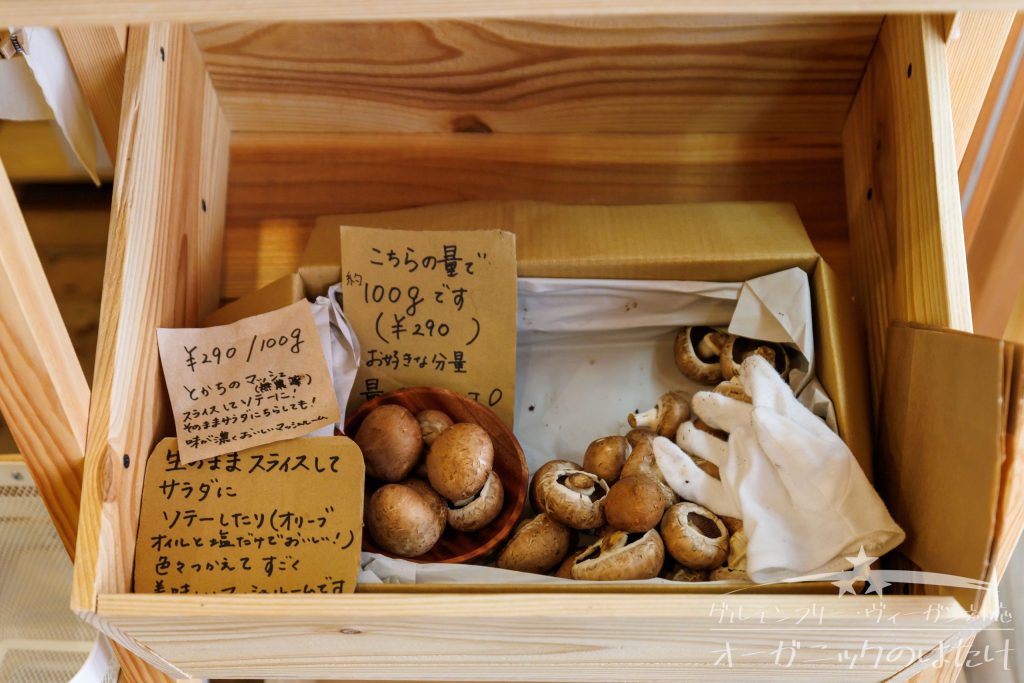 こちらの量で
約100gです
(¥290)
お好きな分量
¥290/100g
とかちのマッシュ
スライスしてソテーに!
そのままサラダにちらしても!
味が濃くおいしいマッシュルーム
生のままスライスして
サラダに
ソテーしたり(オリーブ
オイルと塩だけでおいしい!)
色々つかえてすごく
美味しいマッシュルームです
グルテンフリー・ヴィーガン対応
オーガニックのはたけ